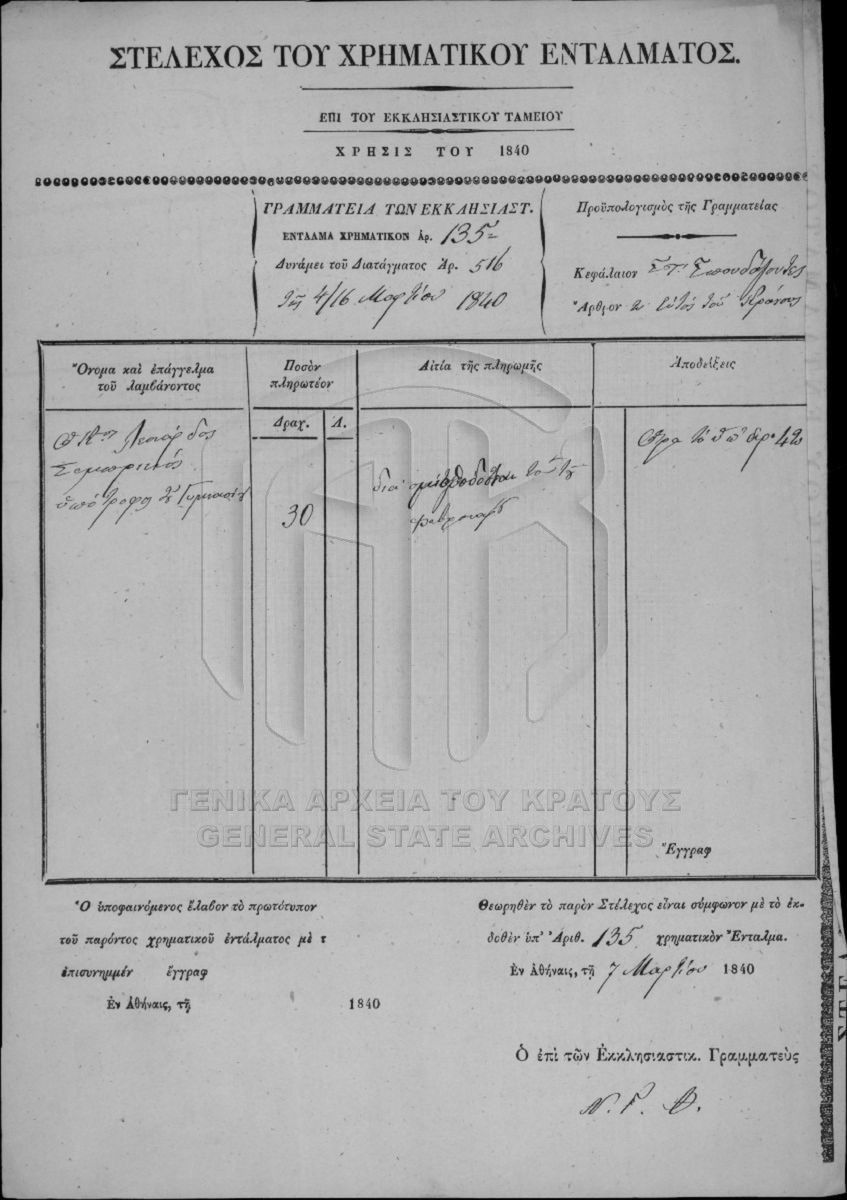 ΣΤΕΛΕΧΟΣ ΤΟΥ ΧΡΗΜΑΤΙΚΟΥ ΕΝΤΑΛΜΑΤΟΣ.
ΕΠΙ ΤΟΥ ΕΚΚΛΗΣΙΑΣΤΙΚΟΥ ΤΑΜΕΙΟΥ
ΧΡΗΣΙΣ ΤΟΥ 1840
ΓΡΑΜΜΑΤΕΙΑ ΤΩΝ ΕΚΚΛΗΣΙΑΣΤ.
ΕΝΤΑΛΜΑ ΧΡΗΜΑΤΙΚΟΝ Αρ. 135
Δυνάμει τοῦ Διατάγματος Ἀρ. 516
τῆς 4/16 Μαρτίου 1840
Προϋπολογισμὸς τῆς Γραμματείας
Κεφάλαιον ΣΤ. Σπουδάζοντες
Ἄρθρον 2 ἐντὸς τοῦ Κράτους
Ὄνομα καὶ ἐπάγγελμα
τοῦ λαμβάνοντος
Ποσὸν
πληρωτέον
Αἰτία τῆς πληρωμῆς
Ἀποδείξεις
Δραχ. Λ.
ὑπότροφος τοῦ Γυμνασίου
30
διὰ μισθοδοσίαν του τοῦ
Φεβρουαρ
42
ΓΕΝΙΚΑ ΑΡΧΕΙΑ ΤΟΥ ΚΡΑΤΟΥΣ
GENERAL STATE ARCHIVES
Ἔγγραφ
Ὁ ὑποφαινόμενος ἔλαβον τὸ πρωτότυπον
τοῦ παρόντος χρηματικοῦ ἐντάλματος μὲ τ
ἐπισυνημμέν ἔγγραφ
Ἐν Ἀθήναις, τῇ 1840
Θεωρηθὲν τὸ παρὸν Στέλεχος εἶναι σύμφωνον μὲ τὸ ἐκ-
δοθὲν ὑπ' Ἀριθ. 135 χρηματικὸν Ἔνταλμα.
Ἐν Ἀθήναις, τῇ 7 Μαρτίου 1840
Ὁ ἐπὶ τῶν Ἐκκλησιαστικ. Γραμματεὺς
Ν. Γ. Θ.